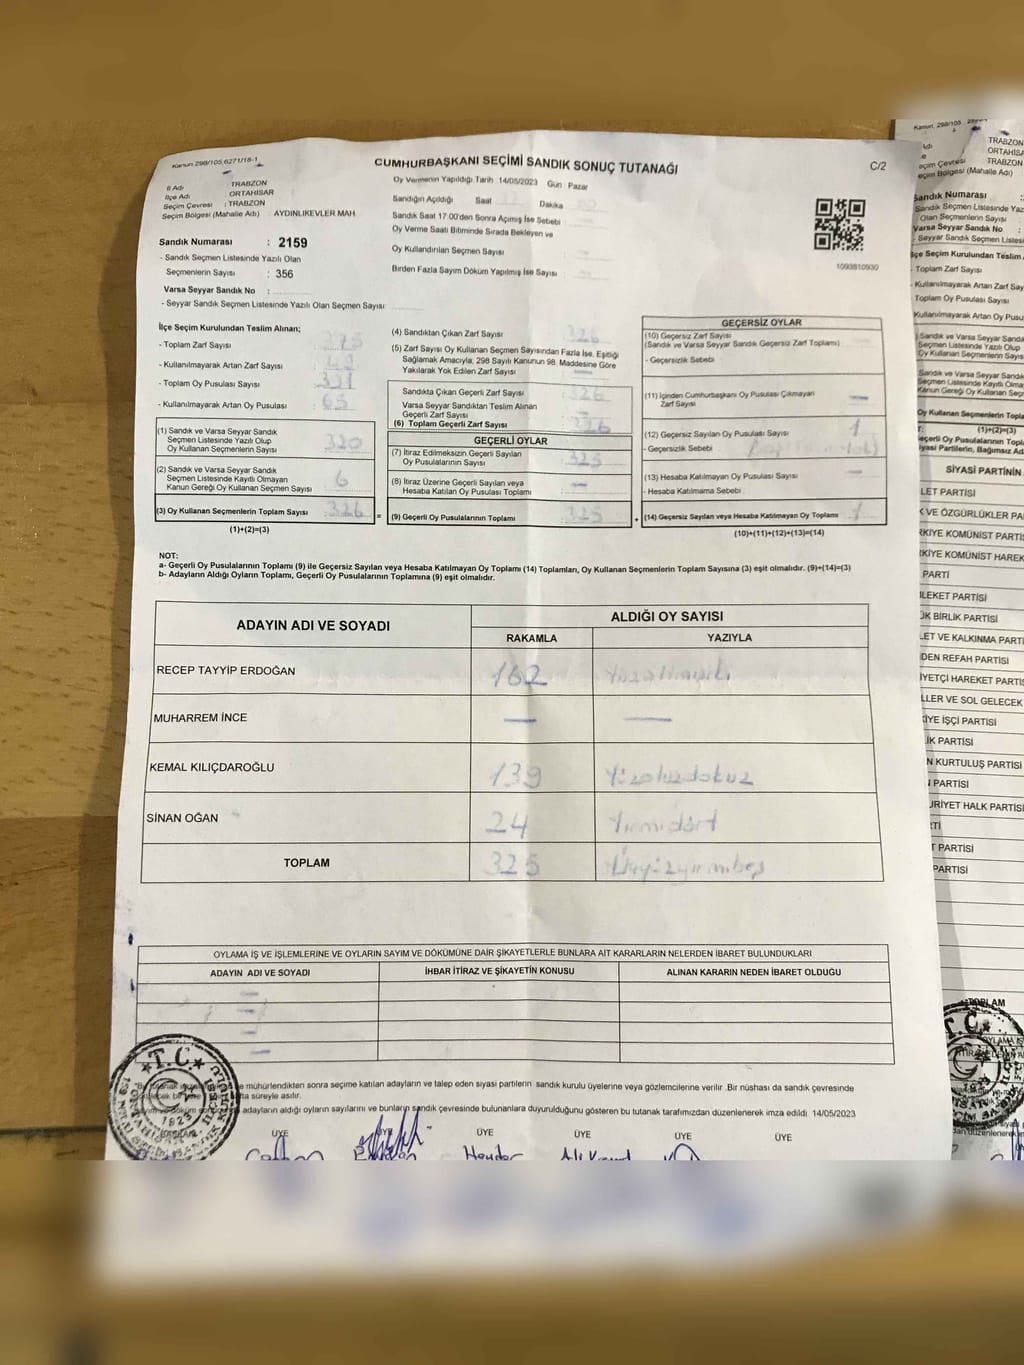 Kanun, 298/105,6271/18-1
CUMHURBAŞKANI SEÇİMİ SANDIK SONUÇ TUTANAĞI
C/2
İl Adı TRABZON
İlçe Adı ORTAHİSAR
Seçim Çevresi : TRABZON
Seçim Bölgesi (Mahalle Adı) AYDINLIKEVLER MAH.
Sandık Numarası : 2159
- Sandık Seçmen Listesinde Yazılı Olan
Seçmenlerin Sayısı : 356
Varsa Seyyar Sandık No :
- Seyyar Sandık Seçmen Listesinde Yazılı Olan Seçmen Sayısı
Oy Vermenin Yapıldığı Tarih 14/05/2023 Gün Pazar
Sandığın Açıldığı Saat Dakika
Sandık Saat 17:00'den Sonra Açımış İse Sebebi
Oy Verme Saati Bitiminde Sırada Bekleyen ve
Oy Kullandırılan Seçmen Sayısı
Birden Fazla Sayım Döküm Yapılmış İse Sayısı
1093810930
İlçe Seçim Kurulundan Teslim Alınan;
- Toplam Zarf Sayısı : 375
- Kullanılmayarak Artan Zarf Sayısı : 49
- Toplam Oy Pusulası Sayısı : 391
- Kullanılmayarak Artan Oy Pusulası : 65
(1) Sandık ve Varsa Seyyar Sandık
Seçmen Listesinde Yazılı Olup
Oy Kullanan Seçmen Sayısı 320
(2) Sandık ve Varsa Seyyar Sandık
Seçmen Listesinde Kayıtlı Olmayan
Kanun Gereği Oy Kullanan Seçmen Sayısı 6
(3) Oy Kullanan Seçmenlerin Toplam Sayısı 326
(1)+(2)=(3)
(4) Sandıktan Çıkan Zarf Sayısı 326
(5) Zarf Sayısı Oy Kullanan Seçmen Sayısından Fazla İse, Eşitliği
Sağlamak Amacıyla; 298 Sayılı Kanunun 98. Maddesine Göre
Yakılarak Yok Edilen Zarf Sayısı —
Sandıkta Çıkan Geçerli Zarf Sayısı 326
Varsa Seyyar Sandıktan Teslim Alınan
Geçerli Zarf Sayısı —
(6) Toplam Geçerli Zarf Sayısı 326
GEÇERLİ OYLAR
(7) İtiraz Edilmeksizin Geçerli Sayılan
Oy Pusulalarının Sayısı 325
(8) İtiraz Üzerine Geçerli Sayılan veya
Hesaba Katılan Oy Pusulası Toplamı —
= (9) Geçerli Oy Pusulalarının Toplamı 325
GEÇERSİZ OYLAR
(10) Geçersiz Zarf Sayısı
(Sandık ve Varsa Seyyar Sandık Geçersiz Zarf Toplamı)
- Geçersizlik Sebebi
(11) İçinden Cumhurbaşkanı Oy Pusulası Çıkmayan
Zarf Sayısı —
(12) Geçersiz Sayılan Oy Pusulası Sayısı 1
- Geçersizlik Sebebi
(13) Hesaba Katılmayan Oy Pusulası Sayısı —
- Hesaba Katılmama Sebebi
+ (14) Geçersiz Sayılan veya Hesaba Katılmayan Oy Toplamı 1
(10)+(11)+(12)+(13)=(14)
NOT:
a- Geçerli Oy Pusulalarının Toplamı (9) ile Geçersiz Sayılan veya Hesaba Katılmayan Oy Toplamı (14) Toplamları, Oy Kullanan Seçmenlerin Toplam Sayısına (3) eşit olmalıdır. (9)+(14)=(3)
b- Adayların Aldığı Oyların Toplamı, Geçerli Oy Pusulalarının Toplamına (9) eşit olmalıdır.
ADAYIN ADI VE SOYADI
ALDIĞI OY SAYISI
RAKAMLA YAZIYLA
RECEP TAYYİP ERDOĞAN 162 Yüzaltmışiki
MUHARREM İNCE — —
KEMAL KILIÇDAROĞLU 139 Yüzotuzdokuz
SİNAN OĞAN 24 Yirmidört
TOPLAM 325 Üçyüzyirmibeş
OYLAMA İŞ VE İŞLEMLERİNE VE OYLARIN SAYIM VE DÖKÜMÜNE DAİR ŞİKAYETLERLE BUNLARA AİT KARARLARIN NELERDEN İBARET BULUNDUKLARI
ADAYIN ADI VE SOYADI İHBAR İTİRAZ VE ŞİKAYETİN KONUSU ALINAN KARARIN NEDEN İBARET OLDUĞU
mühürlendikten sonra seçime katılan adayların ve talep eden siyasi partilerin sandık kurulu üyelerine veya gözlemcilerine verilir .Bir nüshası da sandık çevresinde
süreyle asılır.
adayların aldığı oyların sayılarını ve bunların sandık çevresinde bulunanlara duyurulduğunu gösteren bu tutanak tarafımızdan düzenlenerek imza edildi. 14/05/2023
T.C.
1923
BAŞKAN ÜYE ÜYE ÜYE ÜYE ÜYE ÜYE
TRABZON
ORTAHİSA
TRABZON
eçim Bölgesi (Mahalle Adı)
Sandık Numarası :
Sandık Seçmen Listesinde Yaz
Olan Seçmenlerin Sayısı
Varsa Seyyar Sandık No :
- Seyyar Sandık Seçmen Listesi
lçe Seçim Kurulundan Teslim A
- Toplam Zarf Sayısı
- Kullanılmayarak Artan Zarf Say
Toplam Oy Pusulası Sayısı
Kullanılmayarak Artan Oy Pusu
(1)+(2)=(3)
SİYASİ PARTİNİN
LET PARTİSİ
K VE ÖZGÜRLÜKLER PA
RKİYE KOMÜNİST PARTİS
RKİYE KOMÜNİST HAREK
PARTİ
LEKET PARTİSİ
ÜK BİRLİK PARTİSİ
LET VE KALKINMA PARTİ
DEN REFAH PARTİSİ
İYETÇİ HAREKET PARTİS
LLER VE SOL GELECEK
KİYE İŞÇİ PARTİSİ
İK PARTİSİ
N KURTULUŞ PARTİSİ
İ PARTİSİ
URİYET HALK PARTİSİ
RTİ
T PARTİSİ
PARTİSİ
TOPLAM